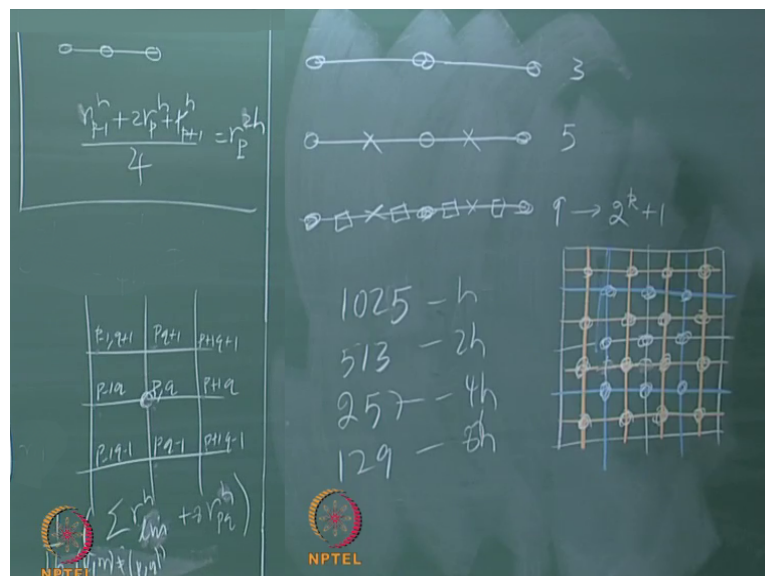 r_{p-1}^h + 2r_p^h + r_{p+1}^h
4
= r_p^{2h}
p-1,q+1 p,q+1 p+1q+1
p-1q p,q p+1q
p-1q-1 p,q-1 p+1q-1
∑ r_{lm}^h + r_{pq}^h )
NPTEL
3
5
9 → 2^k+1
1025 - h
513 - 2h
257 - 4h
129 - 8h
NPTEL